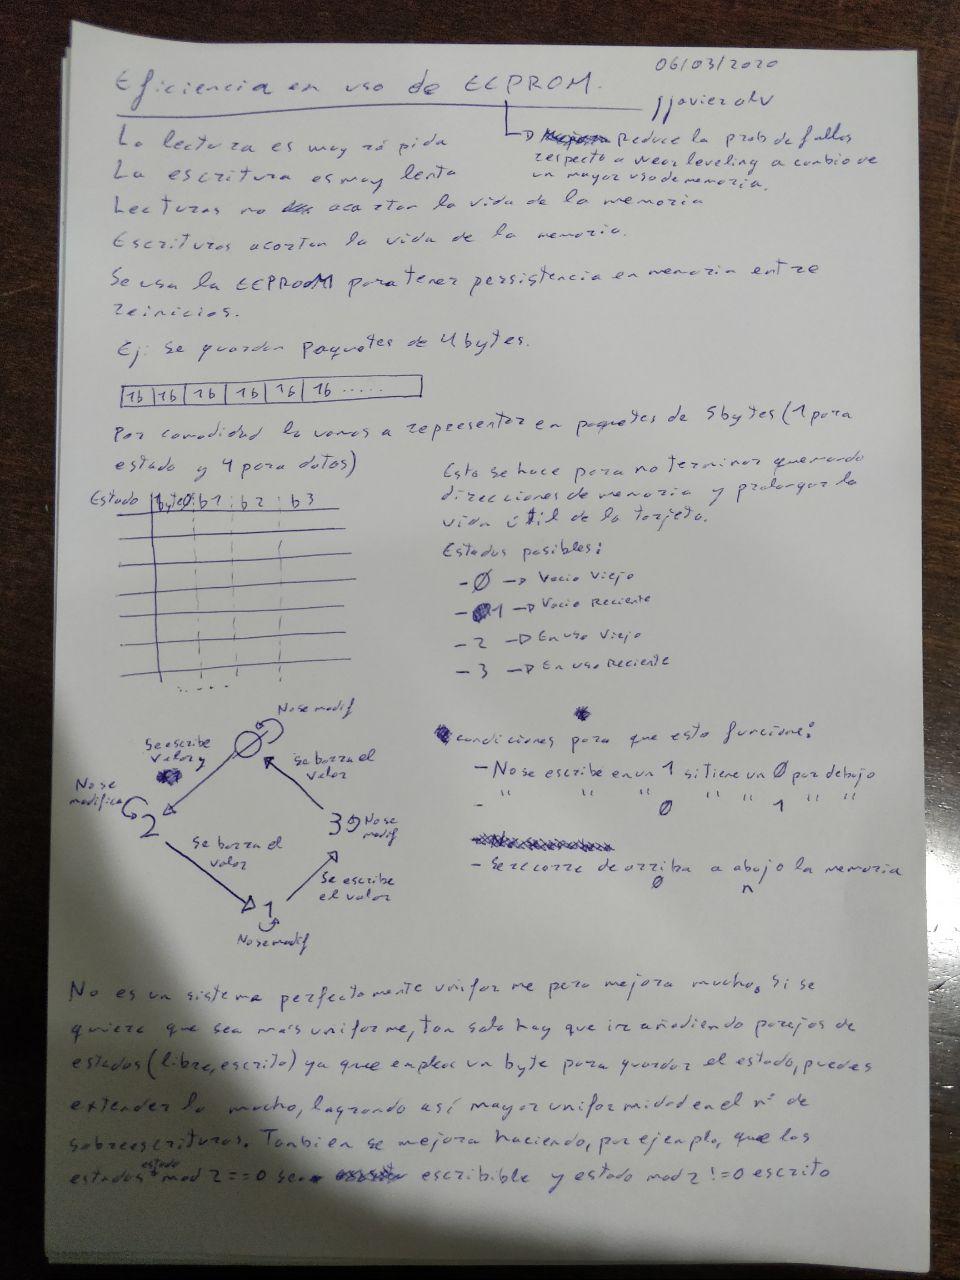 06/03/2020
Eficiencia en uso de EEPROM.
jjavierolv
Reduce la prob de fallos
respecto a wear leveling a cambio de
un mayor uso de memoria.
La lectura es muy rápida
La escritura es muy lenta
Lecturas no acortan la vida de la memoria
Escrituras acortan la vida de la memoria.
Se usa la EEPROM para tener persistencia en memoria entre
reinicios.
Ej: Se guardan paquetes de 4 bytes.
1b 1b 1b 1b 1b 1b .....
Por comodidad lo vamos a representar en paquetes de 5 bytes (1 para
estado y 4 para datos)
Estado byte0 b1 b2 b3
.....
Esto se hace para no terminar quemando
direcciones de memoria y prolongar la
vida útil de la tarjeta.
Estados posibles:
- 0 -> Vacio Viejo
- 1 -> Vacio Reciente
- 2 -> En uso Viejo
- 3 -> En uso Reciente
No se modif
0
Se escribe
valor y
Se borra el
valor
No se
modifica
2
3
No se
modif
Se borra el
valor
Se escribe
el valor
1
No se modif
condiciones para que esto funcione:
- No se escribe en un 1 si tiene un 0 por debajo
- " " " 0 " " 1 " "
- Se recorre de arriba a abajo la memoria
0 n
No es un sistema perfectamente uniforme pero mejora mucho. Si se
quiere que sea más uniforme, tan solo hay que ir añadiendo parejas de
estados (libre, escrito) ya que emplea un byte para guardar el estado, puedes
extenderlo mucho, logrando así mayor uniformidad en el nº de
sobreescrituras. Tambien se mejora haciendo, por ejemplo, que los
estados estado mod 2 == 0 sea escribible y estado mod 2 != 0 escrito